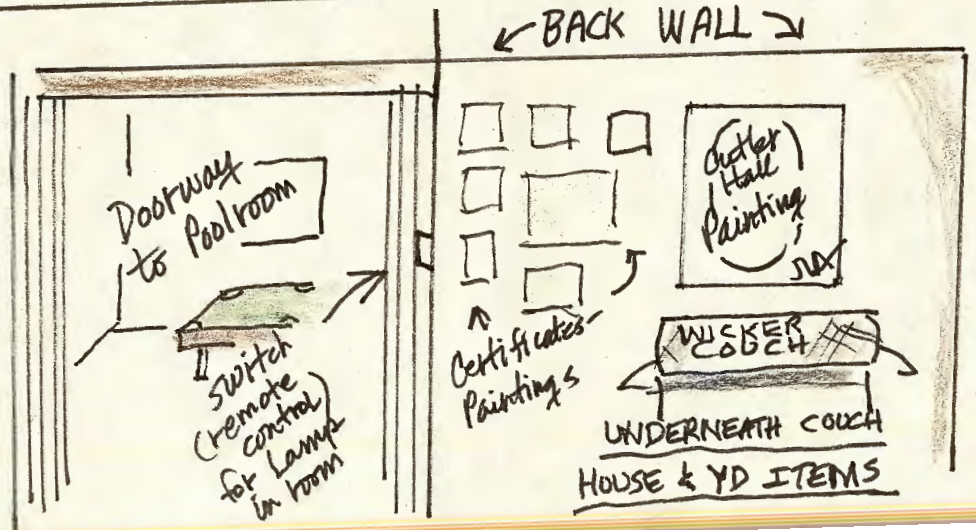 BACK WALL
Doorway
to Poolroom
switch
(remote
control)
for Lamps
in room
Certificates-
Paintings
Cutler
Hall
Painting
WICKER
COUCH
UNDERNEATH COUCH
HOUSE & YD ITEMS